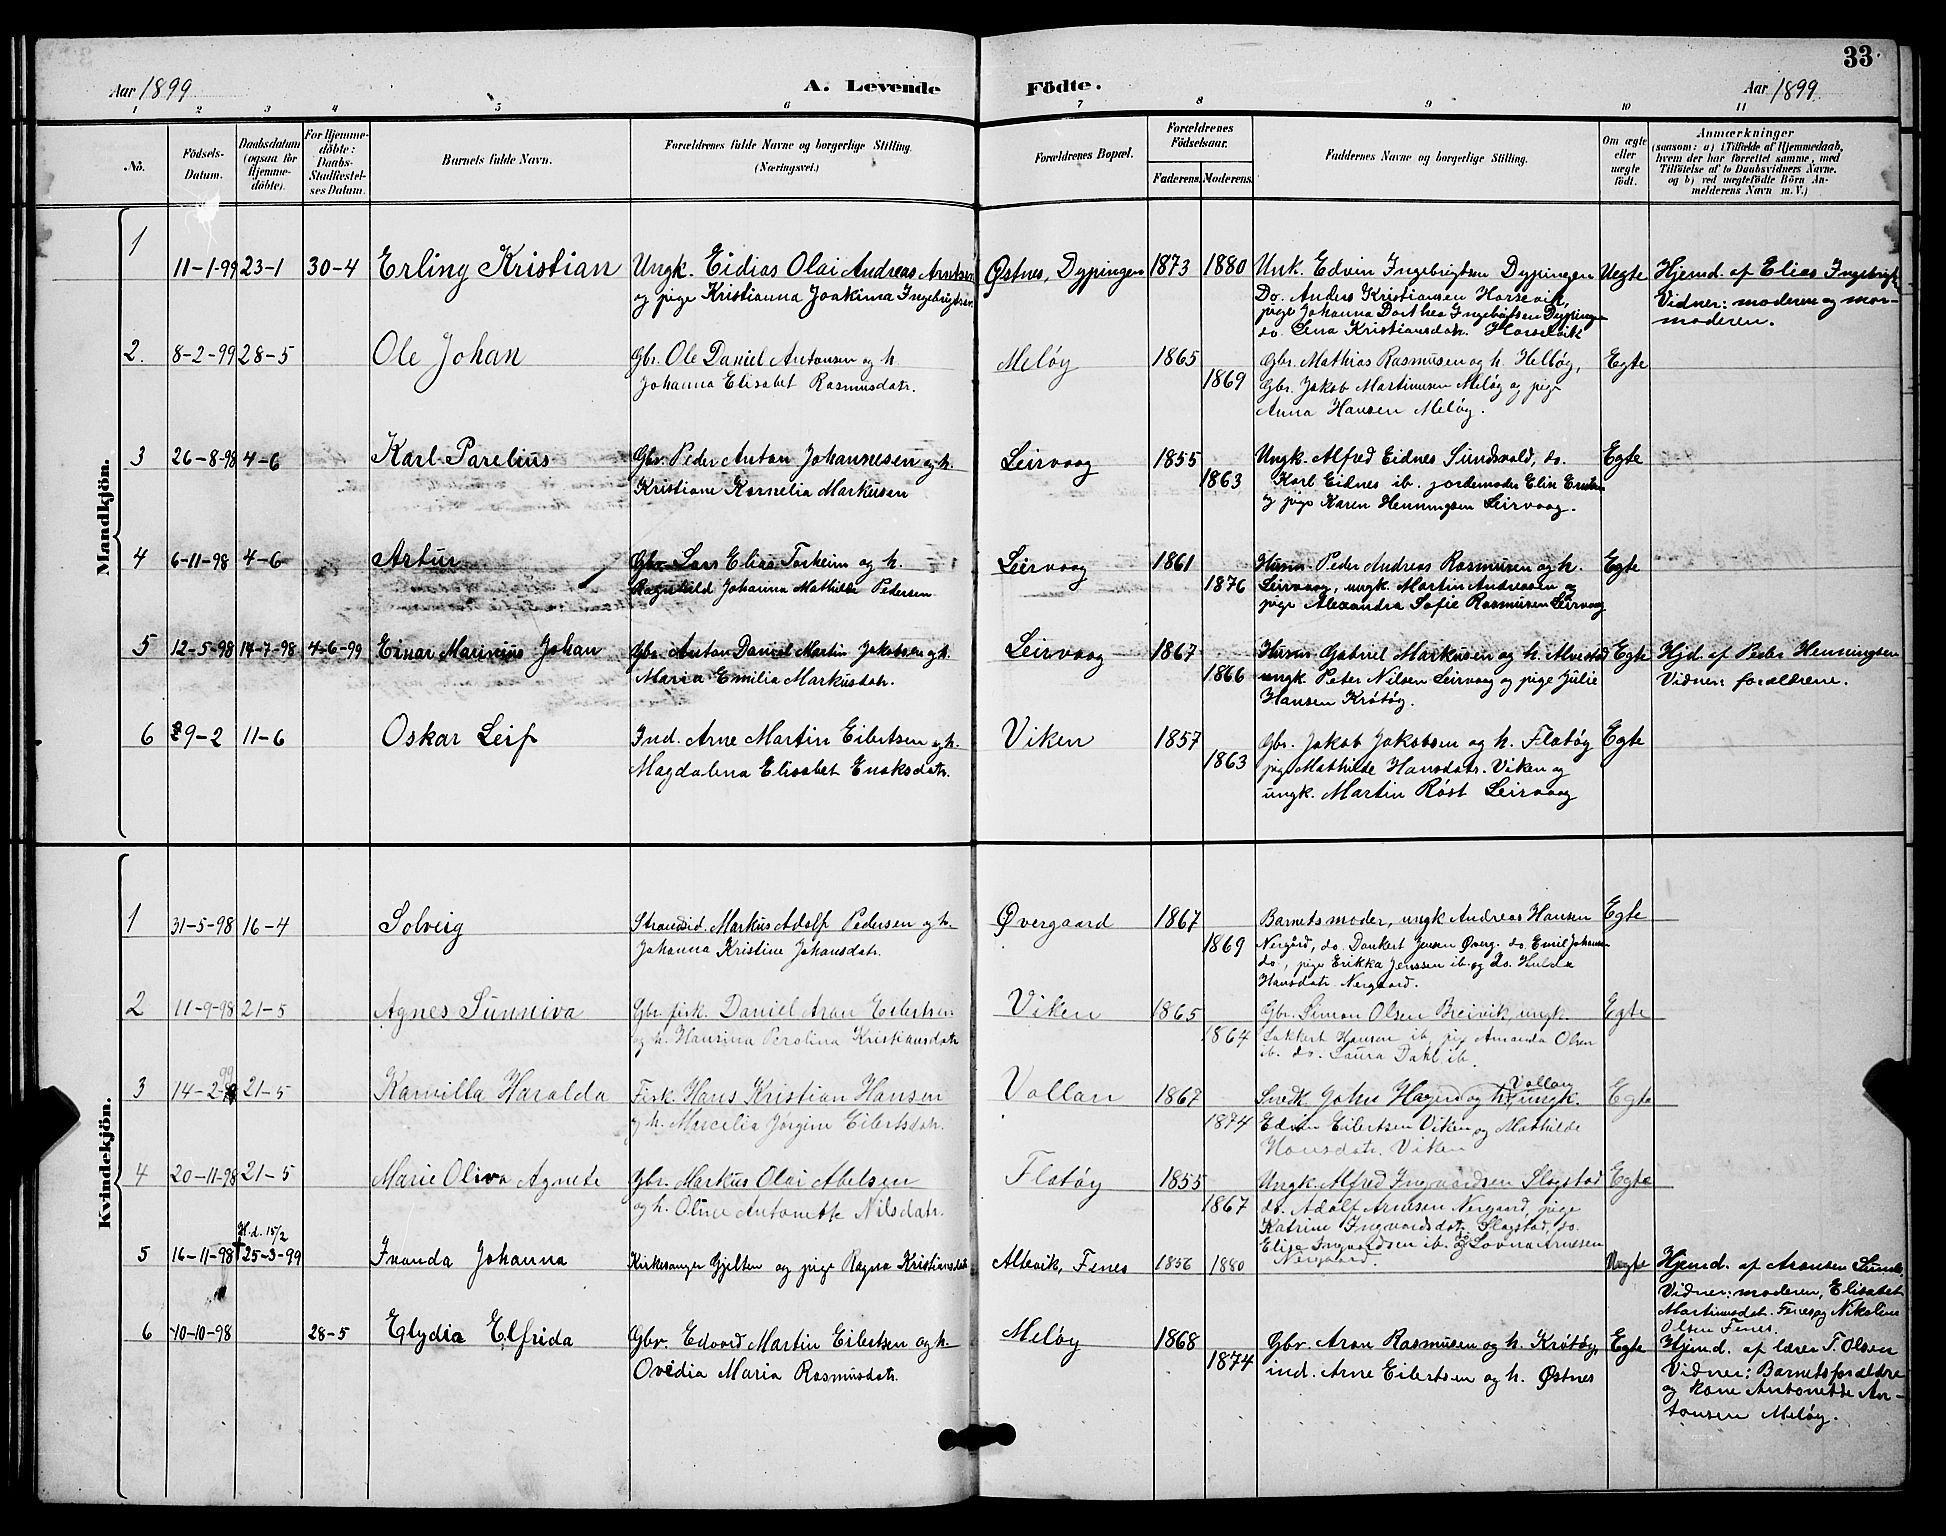 33
Aar 1899
A. Levende
Födte.
Aar 1899
1 2 3 4 5 6 7 8 9 10 11
Nó.
Födsels-Datum.
Daabsdatum (ogsaa for Hjemme-döbte).
For Hjemme-döbte: Daabs-Stadfæstel-ses Datum.
Barnets fulde Navn.
Forældrenes fulde Navne og borgerlige Stilling. (Næringsvei.)
Forældrenes Bopæl.
Forældrenes Födselsaar.
Faderens. Moderens.
Faddernes Navne og borgerlige Stilling.
Om ægte eller uægte födt.
Anmærkninger
(saasom: a) i Tilfælde af Hjemmedaab,
hvem der har forrettet samme, med
Tilföielse af to Daabsvidners Navne,
og b) ved uægtefödte Börn An-
melderens Navn m. V.)
Mandkjön.
1
11-1-99 23-1 30-4 Erling Kristian
Ungk. Eidias Olai Andreas Arntsen
og pige Kristianna Joakima Ingebrigtsen
Østnes, Dypingen 1873 1880
Unk. Edvin Ingebrigtsen Dypingen
Do. Anders Kristiansen Horsevik,
pige Johanna Dorthea Ingebrigtsen Dypingen
do. Lina Kristiansdatr. Horsevik
Uegte
Hjemd. af Elias Ingebrigts.
Vidner: moderen og mor-
moderen.
2. 8-2-99 28-5 Ole Johan
Gbr. Ole Daniel Antonsen og h.
Johanna Elisabet Rasmusdatr.
Meløy 1865 1869
Gbr. Mathias Rasmusen og h. Helløy,
Gbr. Jakob Martinusen Meløy og pige
Anna Hansen Meløy.
Egte
3 26-8-98 4-6 Karl Parelius
Gbr. Peder Anton Johannesen og h.
Kristiane Kornelia Markusen
Leirvaag 1855 1863
Ungk. Alfred Eidnes Sundsvold, do.
Karl Eidnes ib. jordemoder Elise
og pige Karen Henningsen Leirvaag.
Egte
4 6-11-98 4-6 Artur
Gbr. Lars Elias Torheim og h.
Ragnhild Johanna Mathilde Pedersen
Leirvaag 1861 1876
Husm. Peder Andreas Rasmusen og h.
Leirvaag, ungk. Martin Andreasen og
pige Alexandra Sofie Rasmusen Leirvaag
Egte
5 12-5-98 14-7-98 4-6-99 Einar Marinius Johan
Gbr. Anton Daniel Martin Jakobsen og h.
Maria Emilia Markusdatr.
Leirvaag 1867 1866
Husm. Gabriel Markusen og h.
ungk. Peter Nilsen Leirvaag og pige Julie
Hansen Krøtøy.
Egte
Hjd. af Peder Henningsen
Vidner: forældrene.
6 29-2 11-6 Oskar Leif
Ind. Arne Martin Eilertsen og h.
Magdalena Elisabet Enoksdatr.
Viken 1857 1863
Gbr. Jakob Jakobsen og h. Flatøy
pige Mathilde Hansdatr. Viken og
ungk. Martin Røst Leirvaag
Egte
Kvindekjön.
1 31-5-98 16-4 Solveig
Strandsid. Markus Adolf Pedersen og h.
Johanna Kristine Johansdatr.
Øvergaard 1867 1869
Barnets moder, ungk Andreas Hansen
Nergård, do. Dankert Jensen Øverg. do. Emil Johansen
do, pige Erikka Jenssen ib. og do. Hulda
Hansdatr. Nergaard.
Egte
2 11-9-98 21-5 Agnes Sunniva
Gbr. fisk. Daniel Aron Eilertsen
og h. Hansina Perolina Kristiansdatr
Viken 1865 1864
Gbr. Simon Olsen Breivik, ungk.
Hansen ib. pige Amanda Olsen
ib. do. Laura Dahl ib.
Egte
3 14-2-99 21-5 Kamilla Haralda
Fisk. Hans Kristian Hansen
og h. Marcelia Jørgine Eilertsdatr.
Vollan 1867 1874
Snedk. John Hagen og h. Vollan, ungk.
Edvin Eilertsen Viken og Mathilde
Hansdatr. Viken
Egte
4 20-11-98 21-5 Marie Oliva Agnete
Gbr. Markus Olai Abelsen
og h. Oline Antonette Nilsdatr.
Flatøy 1855 1867
Ungk. Alfred Ingvardsen Slagstad
do. Adolf Arnesen Nergaard, pige
Katrine Ingvardsdatr Slagstad, do.
Elise Ingvardsen ib. og do. Lovna Arnesen
Nergaard.
Egte
5 16-11-98 H.d. 15/2 †25-3-99 Ivanda Johanna
Kirkesanger Gjelten og pige Ragna Kristiansdatr
Altevik, Fenes 1856 1880
Uegte
Hjemd. af Aronsen Sund.
Vidner: moderen, Elisabet
Martinusdat. Fenes og Nikolai
Olsen Fenes.
6 10-10-98 28-5 Elydia Elfrida
Gbr. Edvard Martin Eilertsen og h.
Ovedia Maria Rasmusdatr.
Meløy 1868 1874
Gbr. Aron Rasmusen og h. Krøtøy,
ind. Arne Eilertsen og h. Østnes
Egte
Hjemd. af lærer T. Olsen
Vidner: Barnets forældre
og kone Antonette An-
tonsen Meløy.